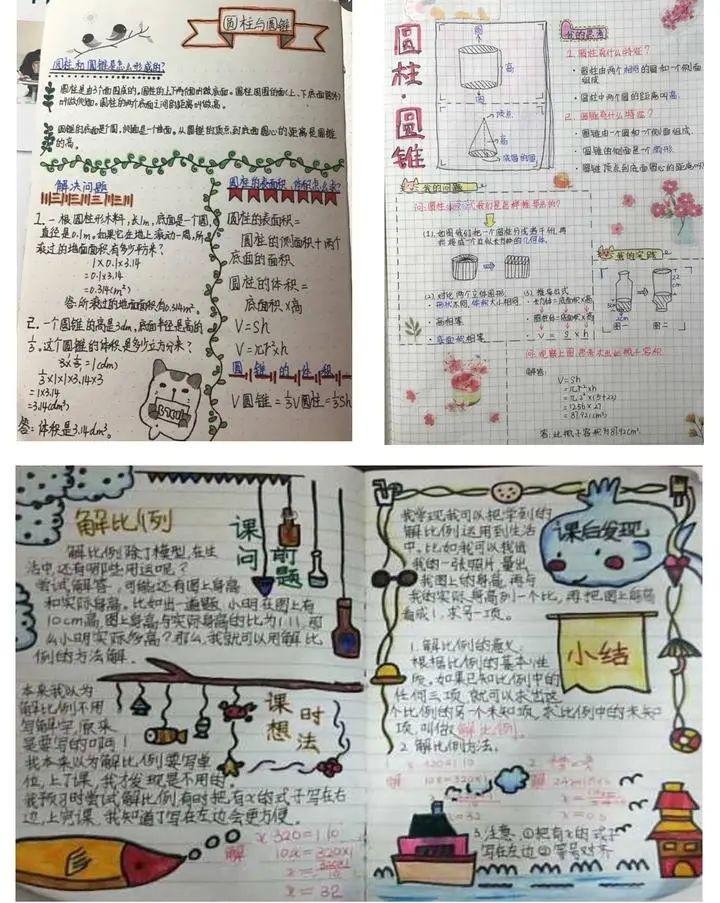 圆柱与圆锥
圆柱和圆锥是怎么形成的?
圆柱是由3个面围成的。圆柱的上下两个面叫做底面。圆柱周围的面(上、下底面除外)
叫做侧面。圆柱的两个底面之间的距离叫做高。
圆锥的底面是个圆,侧面是一个曲面。从圆锥的顶点到底面圆心的距离是圆锥
的高。
解决问题
1. 一根圆柱形木料,长1m,底面是一个圆,
直径是0.1m。如果它在地上滚动一周,所
滚过的地面面积有多少平方米?
1×0.1×3.14
=0.1×3.14
=0.314(m²)
答:所滚过的地面面积有0.314m²。
2. 一个圆锥的高是3dm,底面半径是高的
1/3。这个圆锥的体积是多少立方分米?
3×1/3=1(dm)
1/3×1×1×3.14×3
=1×3.14
=3.14(dm³)
答:体积是3.14dm³。
圆柱的表面积,体积怎么求?
圆柱的表面积=
圆柱的侧面积+两个
底面的面积
圆柱的体积=
底面积×高
V=Sh
V=πr²×h
圆锥的体积
V圆锥=1/3V圆柱=1/3Sh
圆柱·圆锥
圆
高
面
顶点
高
底面的圆
我的思考
1. 圆柱有什么特征?
圆柱由两个相同的圆和一个侧面
组成
圆柱中两个圆的距离叫高。
2. 圆锥有什么特征?
圆锥由一个圆和一个侧面组成
圆锥的侧面是个扇形
圆锥顶点到底面圆心的距离叫
我的问题
(2). 对比两个立体图形
形状不同,体积大小相同
高相等
底面积相等
(3). 推导公式
长方体=底面积×高
圆柱体=底面积×高
V = S × h
我的实践
图一
图二
解答:
V=Sh
=πr²×h
答:此瓶子容积为
解比例
课前
问题
解比例除了模型,在生
活中还有哪些用运呢?
尝试解答,可能还有图上身高
和实际身高。比如出一道题,小明在图上有
10cm高,图上身高与实际身高的比为1:11,那
么小明实际多高?那么,我就可以用解比
例的方法解。
课时
想法
本来我以为
解比例不用
写解字,原来
是要写的啊!
我本来以为解比例要写单
位,上了课,我才发现是不用的。
我预习时尝试解比例,有时把有x的式子写在右
边,上完课,我知道了写在左边会更方便。
解
x:320=1:10
10x=320×1
x=32
课后发现
我发现我可以把学到的
解比例运用到生活
中。比如我可以找出
我的一张照片,量出
我图上的身高,再与
我的实际身高列一个比,再把图上身高
看成1,求另一项。
小结
1. 解比例的意义:
根据比例的基本性
质。如果已知比例中的
任何三项,就可以求出这
个比例的另一个未知项,求比例中的未知
项,叫做解比例。
2. 解比例方法。
x:320=1:10
解
10x=320×1
x=32
x=0.5
3. 注意,①把有x的式子
写在左边②等号对齐